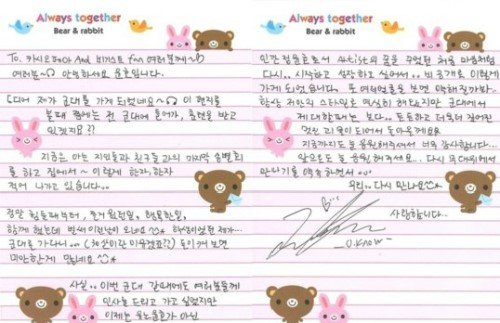 Always together
Bear & rabbit
To. 카시오페아 And 비기스트 fan 여러분께~
여러분~ 안녕하세요 윤호입니다.
드디어 제가 군대를 가게 되었네요~ 이 편지를
볼때 쯤에는 전 군대에 들어가, 훈련을 받고
있겠지요??
지금은 아는 지인들과 친구들 과의 마지막 송별회
를 하고 집에서 ~ 이렇게 한자, 한자
적어 나가고 있습니다..
정말 힘들때부터, 즐거웠던일, 행복한일,
함께 했는데 벌써 이런날이 오네요
제가..
군대를 가다니.. 돌이켜 보면
미안한게 많네요
사실.. 이번 군대 갈때에도 여러분들께
인사를 드리고 가고 싶었지만
이제는 유노윤호가 아닌
Always together
Bear & rabbit
인간 정윤호로서 Artist의 꿈을 꾸었던 처음 마음처럼
다시.. 시작하고 성장하고 싶어서.. 비공개로 이렇게
가게 되었습니다. 여러분들을 보면 약해질까봐..
항상 저만의 스타일로 열심히 해왔지만 군대에서
제대할때는 보다.. 듬직하고 더욱더 깊어진
멋진 리더가 되어서 돌아올께요
지금까지도 늘 응원해주셔서 너무 감사합니다..
앞으로도 늘 응원해주세요... 다시 무대위에서
만나기를 약속하면서
우리.. 다시 만나요
사랑합니다..
U-KNOW-